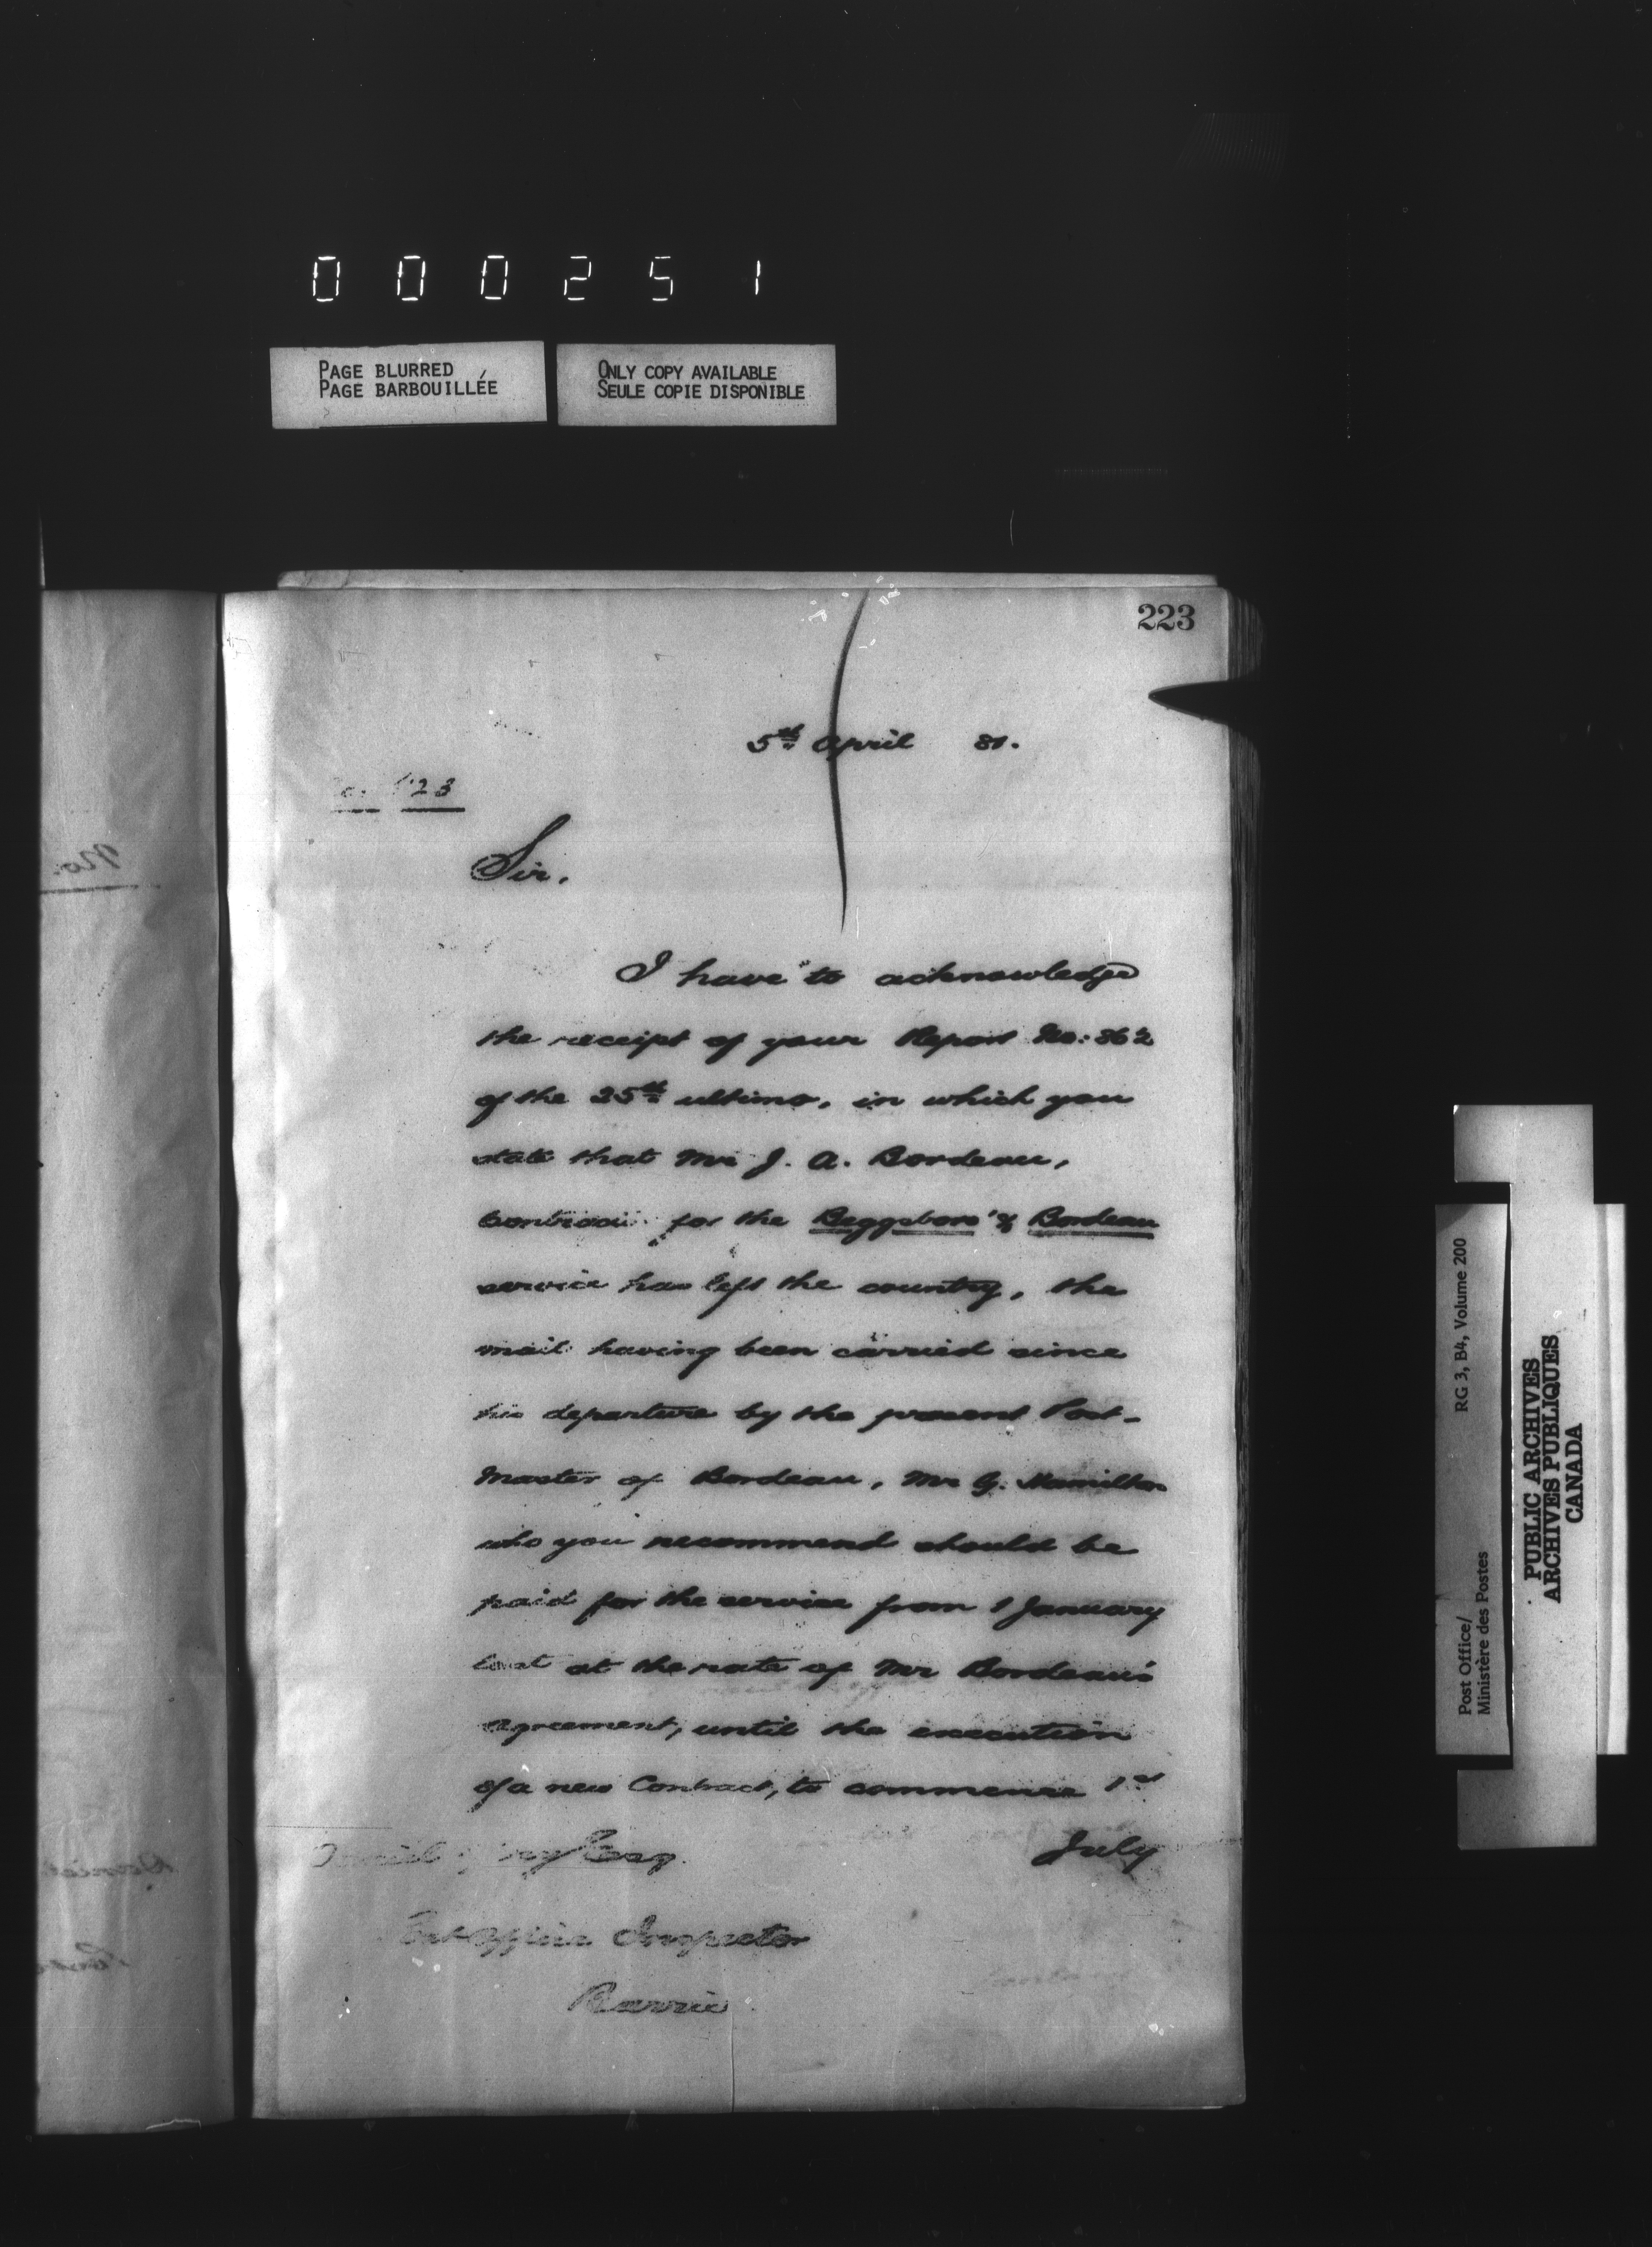 000251
PAGE BLURRED
PAGE BARBOUILLÉE
ONLY COPY AVAILABLE
SEULE COPIE DISPONIBLE
223
5th April 81.
23
Sir,
I have to acknowledge
the receipt of your Report No: 862
of the 25th ultimo, in which you
state that Mr J. A. Bordeau,
Contractor for the Beggsboro' & Bordeau
service has left the country, the
mail having been carried since
his departure by the present Post-
Master of Bordeau, Mr G. Hamilton
who you recommend should be
paid for the service from 1 January
last at the rate of Mr Bordeau's
agreement, until the execution
of a new Contract, to commence 1st
July
Daniel Esq.
Post Office Inspector
Barrie
No.
Post Office/
Ministère des Postes
RG 3, B4, Volume 200
PUBLIC ARCHIVES
ARCHIVES PUBLIQUES
CANADA